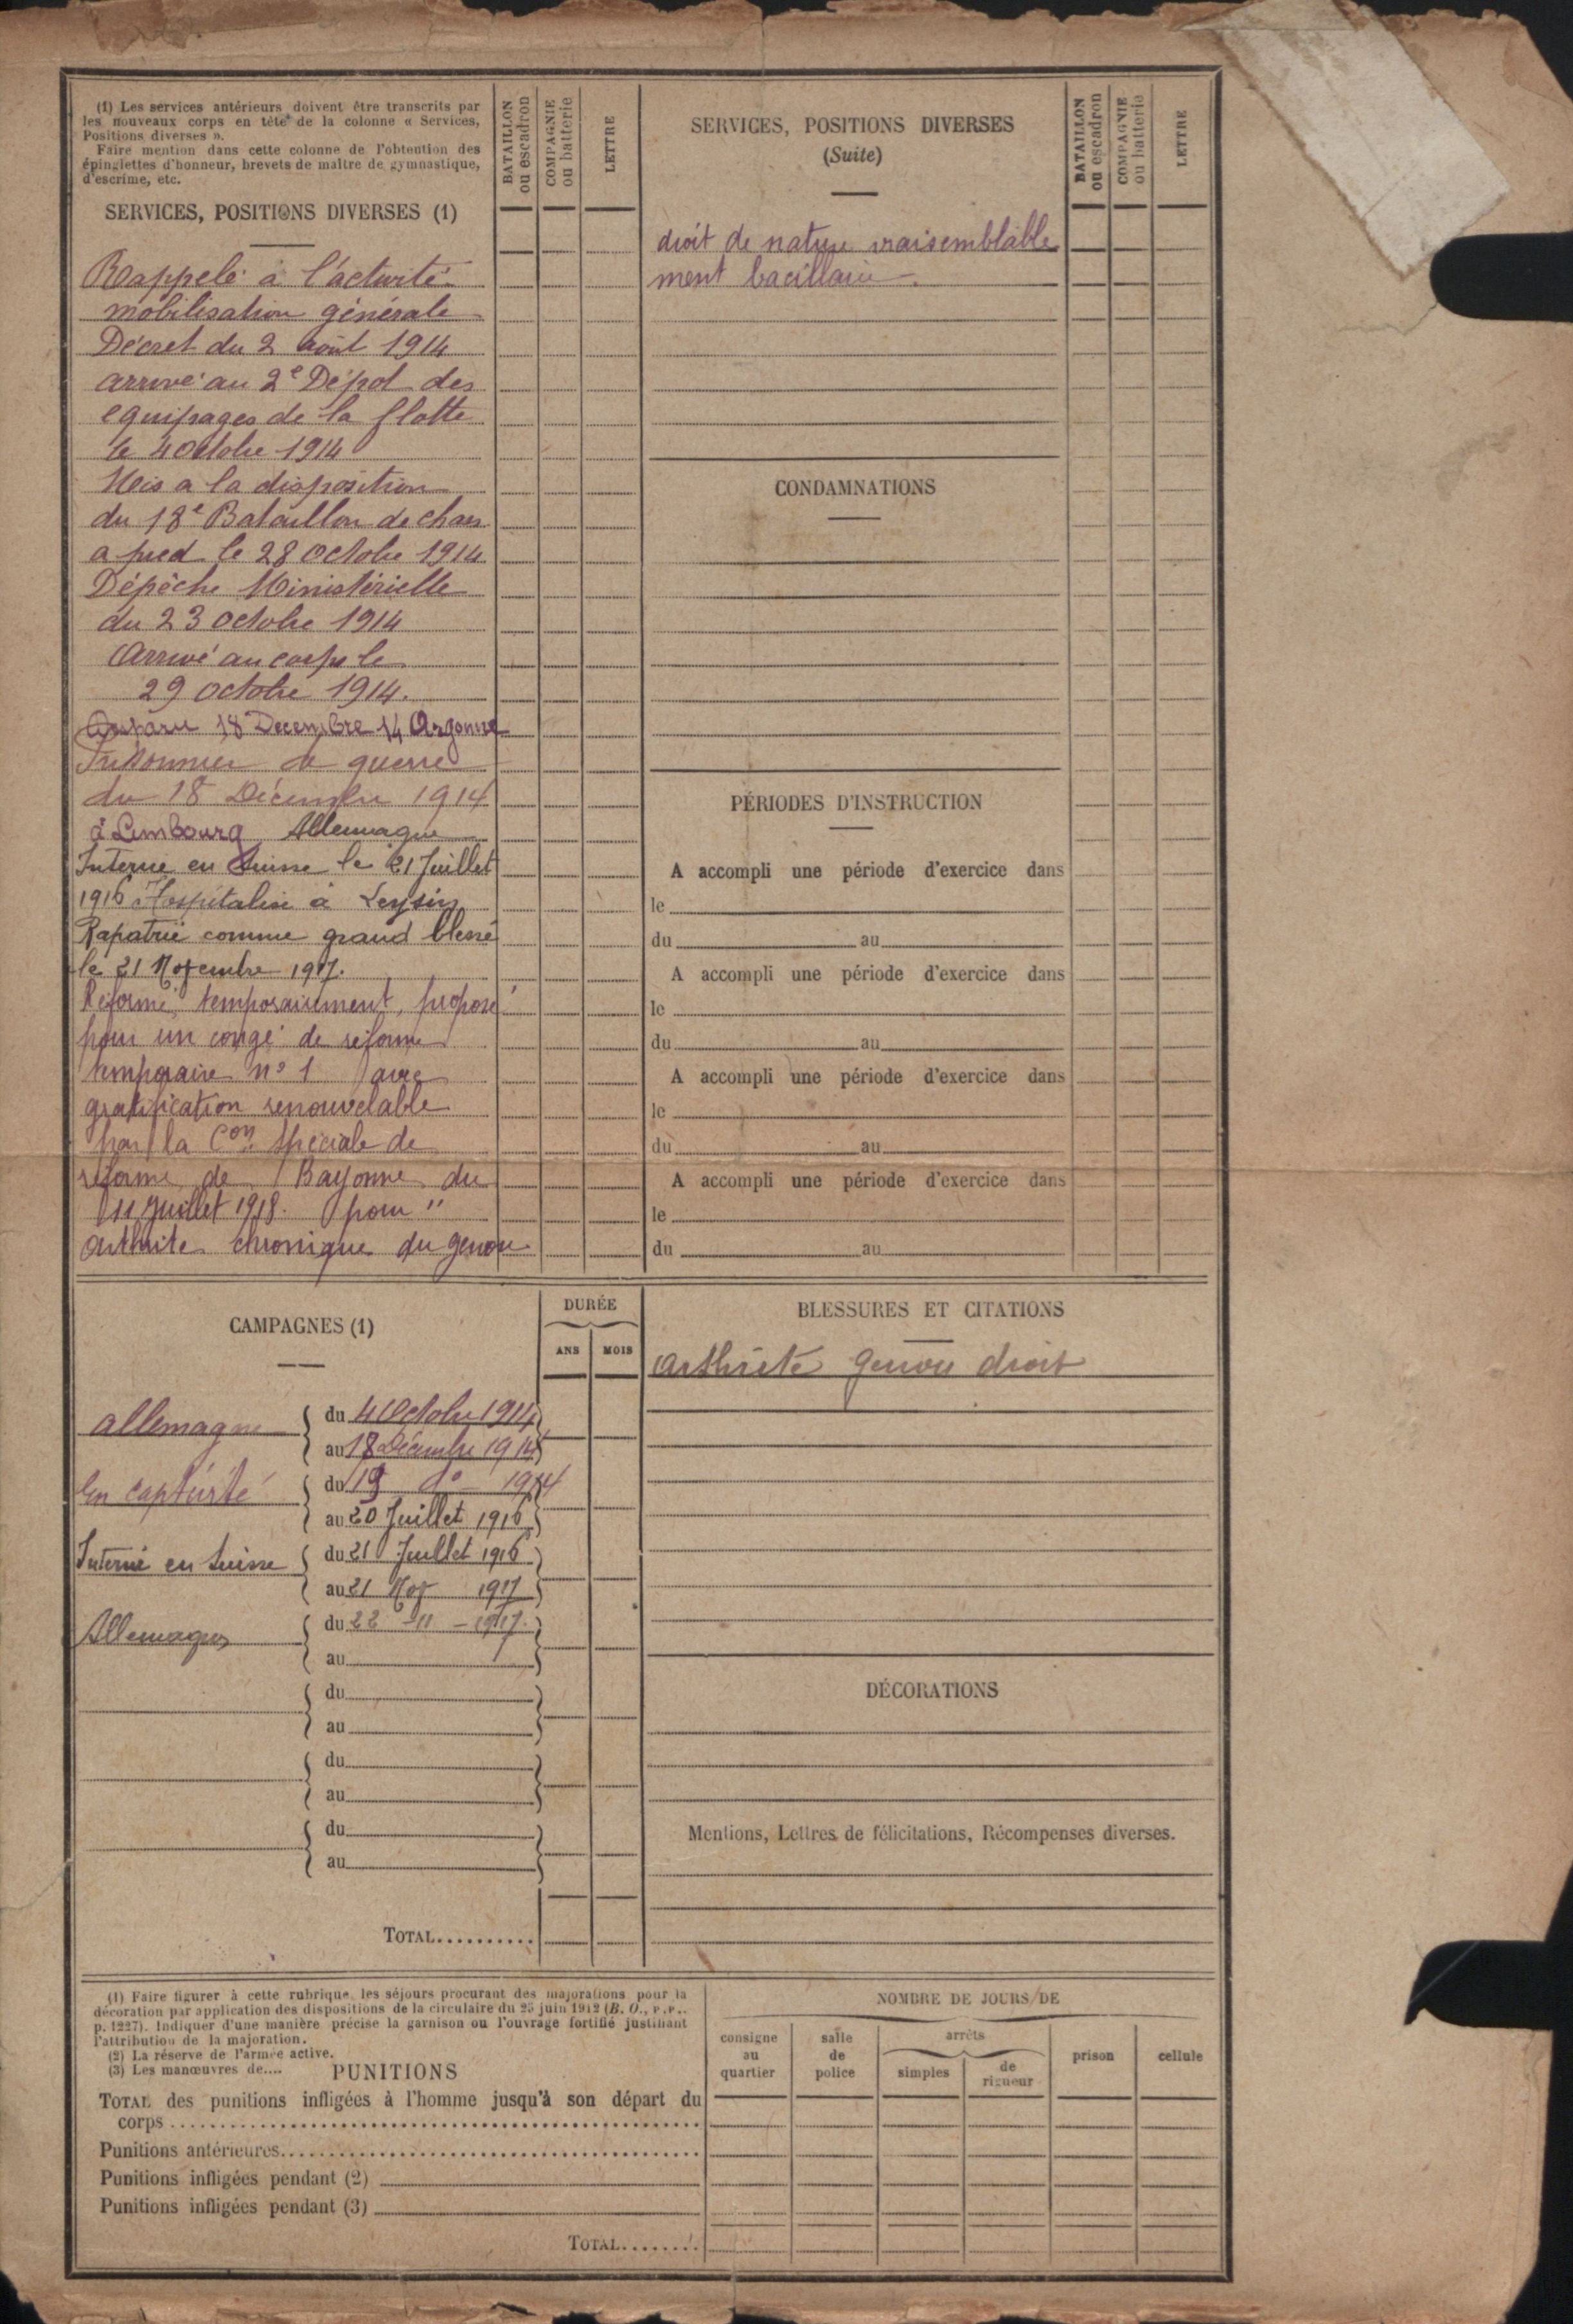 (1) Les services antérieurs doivent être transcrits par
les nouveaux corps en tête de la colonne « Services,
Positions diverses ».
Faire mention dans cette colonne de l'obtention des
épinglettes d'honneur, brevets de maître de gymnastique,
d'escrime, etc.
SERVICES, POSITIONS DIVERSES (1)
BATAILLON
ou escadron
COMPAGNIE
ou batterie
LETTRE
Rappelé à l'activité
mobilisation générale
Décret du 2 août 1914
arrivé au 2e Dépot des
equipages de la flotte
le 4 Octobre 1914
Mis a la disposition
du 18e Bataillon de chas.
a pied le 28 Octobre 1914
Dépêche Ministérielle
du 23 octobre 1914
Arrivé au corps le
29 octobre 1914.
Disparu 18 Decembre 14 Argonne
Prisonnier de guerre
du 18 Décembre 1914
à Limbourg Allemagne
Interné en Suisse le 21 Juillet
1916 Hospitalisé à Leysin
Rapatrié comme grand blessé
le 21 Novembre 1917.
Réformé temporairement, proposé
pour un congé de réforme
temporaire n° 1 avec
gratification renouvelable
par la Con spéciale de
réforme de Bayonne du
11 Juillet 1918. pour "
Arthrite chronique du genou
SERVICES, POSITIONS DIVERSES
(Suite)
BATAILLON
ou escadron
COMPAGNIE
ou batterie
LETTRE
droit de nature vraisemblable
ment bacillaire.
CONDAMNATIONS
PÉRIODES D'INSTRUCTION
A accompli une période d'exercice dans
le
du au
A accompli une période d'exercice dans
le
du au
A accompli une période d'exercice dans
le
du au
A accompli une période d'exercice dans
le
du au
CAMPAGNES (1)
DURÉE
ANS MOIS
allemagne
du 4 Octobre 1914
au 18 Décembre 1914
En captivité
du 19 do 1914
au 20 Juillet 1916
Interné en Suisse
du 21 Juillet 1916
au 21 Nov 1917
Allemagne
du 22 - 11 - 1917.
au
du
au
du
au
du
au
TOTAL..........
BLESSURES ET CITATIONS
Arthrite genou droit
DÉCORATIONS
Mentions, Lettres de félicitations, Récompenses diverses.
(1) Faire figurer à cette rubrique les séjours procurant des majorations pour la
décoration par application des dispositions de la circulaire du 25 juin 1912 (B. O., P.P..
p. 1227). Indiquer d'une manière précise la garnison ou l'ouvrage fortifié justifiant
l'attribution de la majoration.
(2) La réserve de l'armée active.
(3) Les manœuvres de....
PUNITIONS
TOTAL des punitions infligées à l'homme jusqu'à son départ du
corps
Punitions antérieures
Punitions infligées pendant (2)
Punitions infligées pendant (3)
TOTAL........
NOMBRE DE JOURS DE
consigne
au
quartier
salle
de
police
arrêts
simples
de
rigueur
prison
cellule